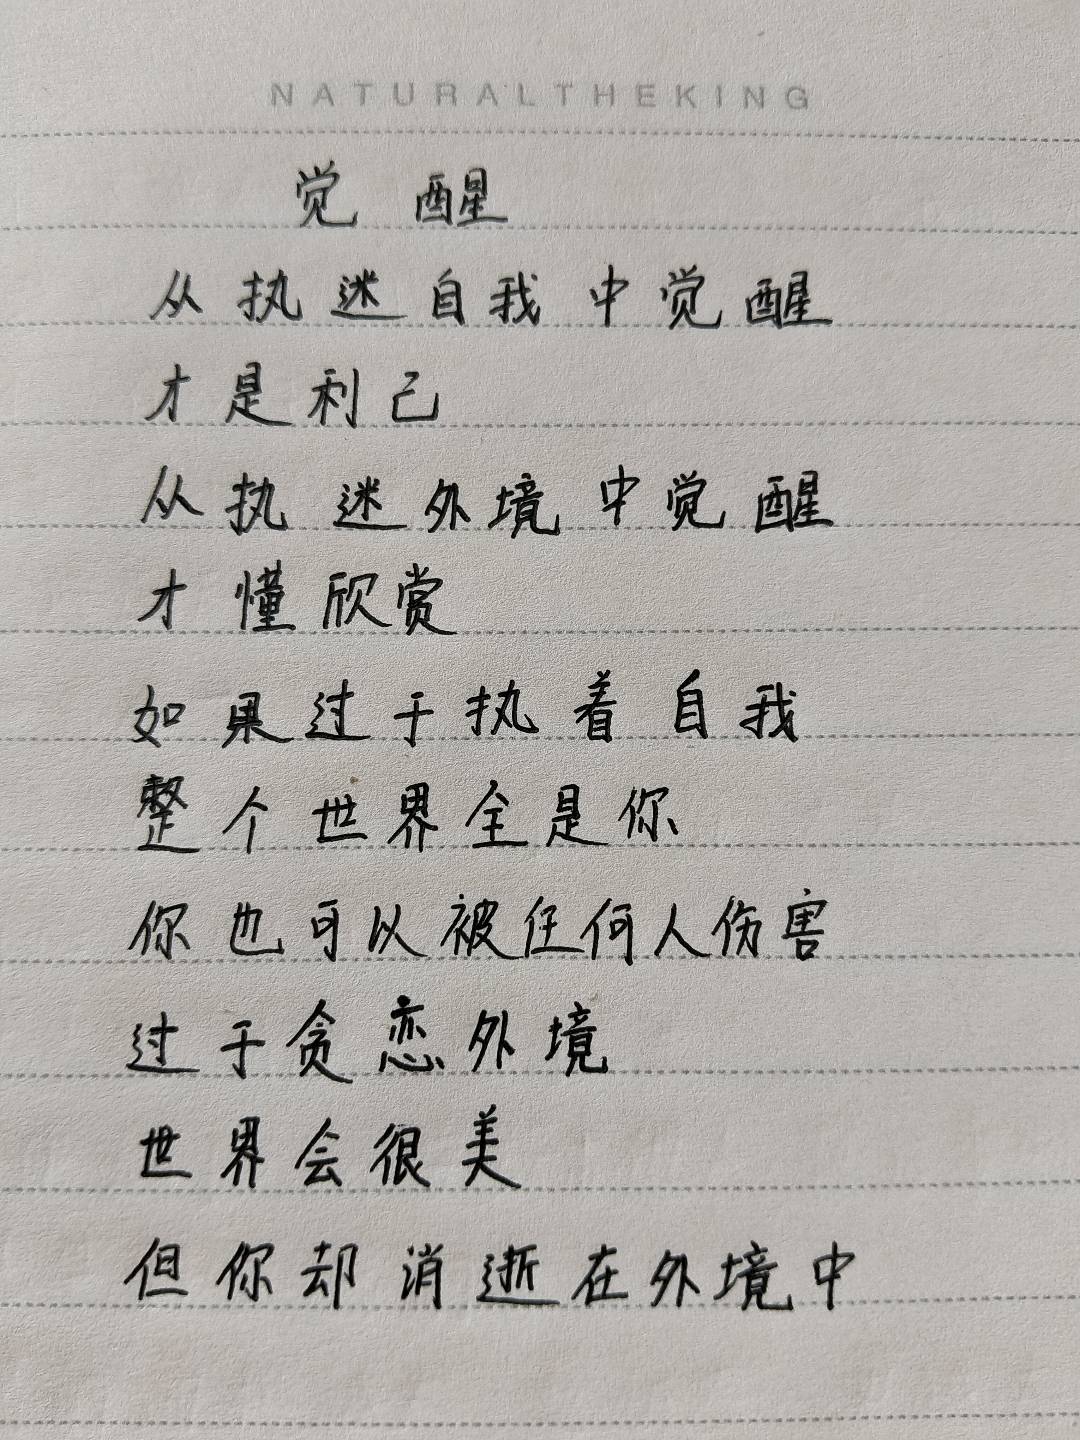 NATURALTHEKING
觉醒
从执迷自我中觉醒
才是利己
从执迷外境中觉醒
才懂欣赏
如果过于执着自我
整个世界全是你
你也可以被任何人伤害
过于贪恋外境
世界会很美
但你却消逝在外境中